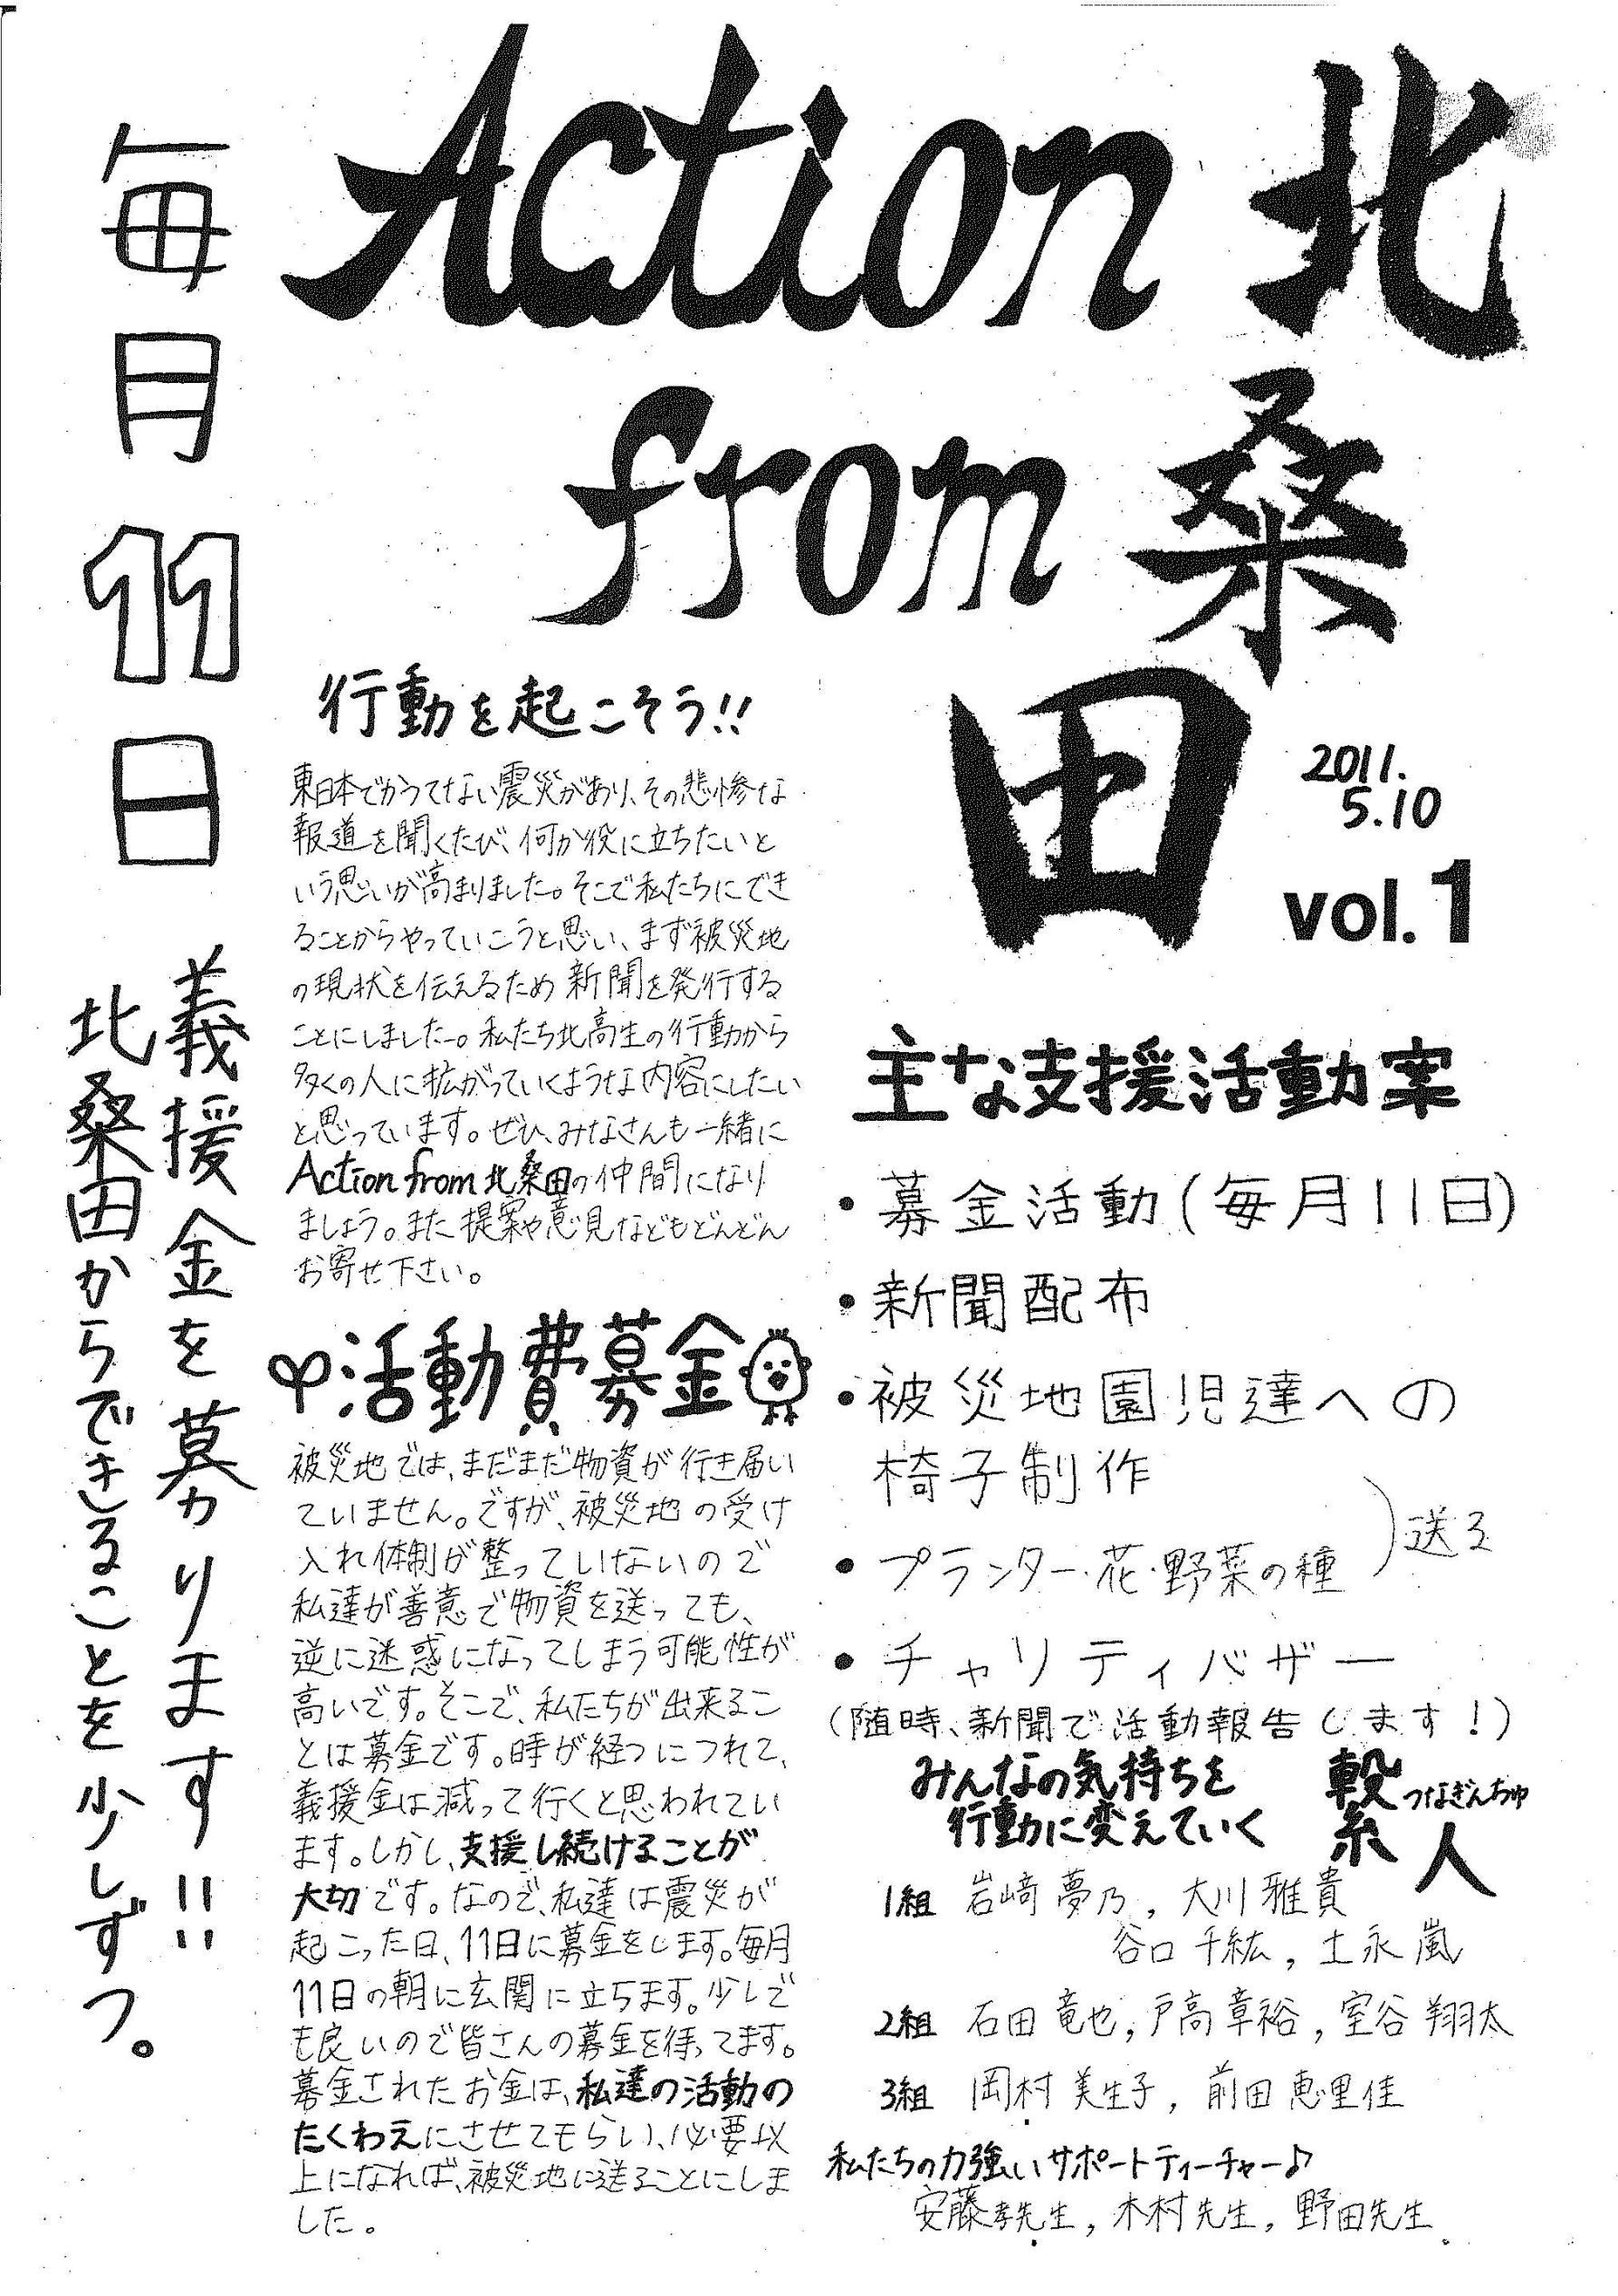 Action from 北桑田
2011.
5.10
vol.1
毎月11日
義援金を募ります!!
北桑田からできることを少しずつ。
行動を起こそう!!
東日本でかつてない震災があり、その悲惨な
報道を聞くたび、何か役に立ちたいと
いう思いが高まりました。そこで私たちにでき
ることからやっていこうと思い、まず被災地
の現状を伝えるため新聞を発行する
ことにしました。私たち北高生の行動から
多くの人に拡がっていくような内容にしたい
と思っています。ぜひ、みなさんも一緒に
Action from 北桑田の仲間になり
ましょう。また提案や意見などもどんどん
お寄せ下さい。
活動費募金
被災地では、まだまだ物資が行き届い
ていません。ですが、被災地の受け
入れ体制が整っていないので
私達が善意で物資を送っても、
逆に迷惑になってしまう可能性が
高いです。そこで、私たちが出来るこ
とは募金です。時が経つにつれて、
義援金は減って行くと思われてい
ます。しかし、支援し続けることが
大切です。なので、私達は震災が
起こった日、11日に募金をします。毎月
11日の朝に玄関に立ちます。少しで
も良いので皆さんの募金を待ってます。
募金されたお金は、私達の活動の
たくわえにさせてもらい、必要以
上になれば、被災地に送ることにしま
した。
主な支援活動案
・募金活動(毎月11日)
・新聞配布
・被災地園児達への
椅子制作
・プランター・花・野菜の種
)送る
・チャリティバザー
(随時、新聞で活動報告します!)
みんなの気持ちを
行動に変えていく
繋人 つなぎんちゅ
1組 岩﨑夢乃, 大川雅貴
谷口千紘, 土永嵐
2組 石田竜也, 戸高章裕, 室谷翔太
3組 岡村美生子, 前田恵里佳
私たちの力強いサポートティーチャー♪
安藤孝先生, 木村先生, 野田先生